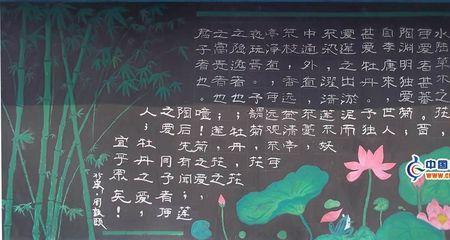 水陆草木之花，
可爱者甚蕃。晋
陶渊明独爱菊；
自李唐来，世人
甚爱牡丹。予独
爱莲之出淤泥而
不染，濯清涟而不妖，
中通外直，不蔓
不枝，香远益清，亭
亭净植，可远观而不可
亵玩焉。予谓菊，花
之隐逸者也；牡丹，花
之富贵者也；莲，花之
君子者也。噫！菊之爱，
陶后鲜有闻；莲
之爱，同予者何
人；牡丹之爱，
宜乎众矣！
北宋·周敦颐
中国